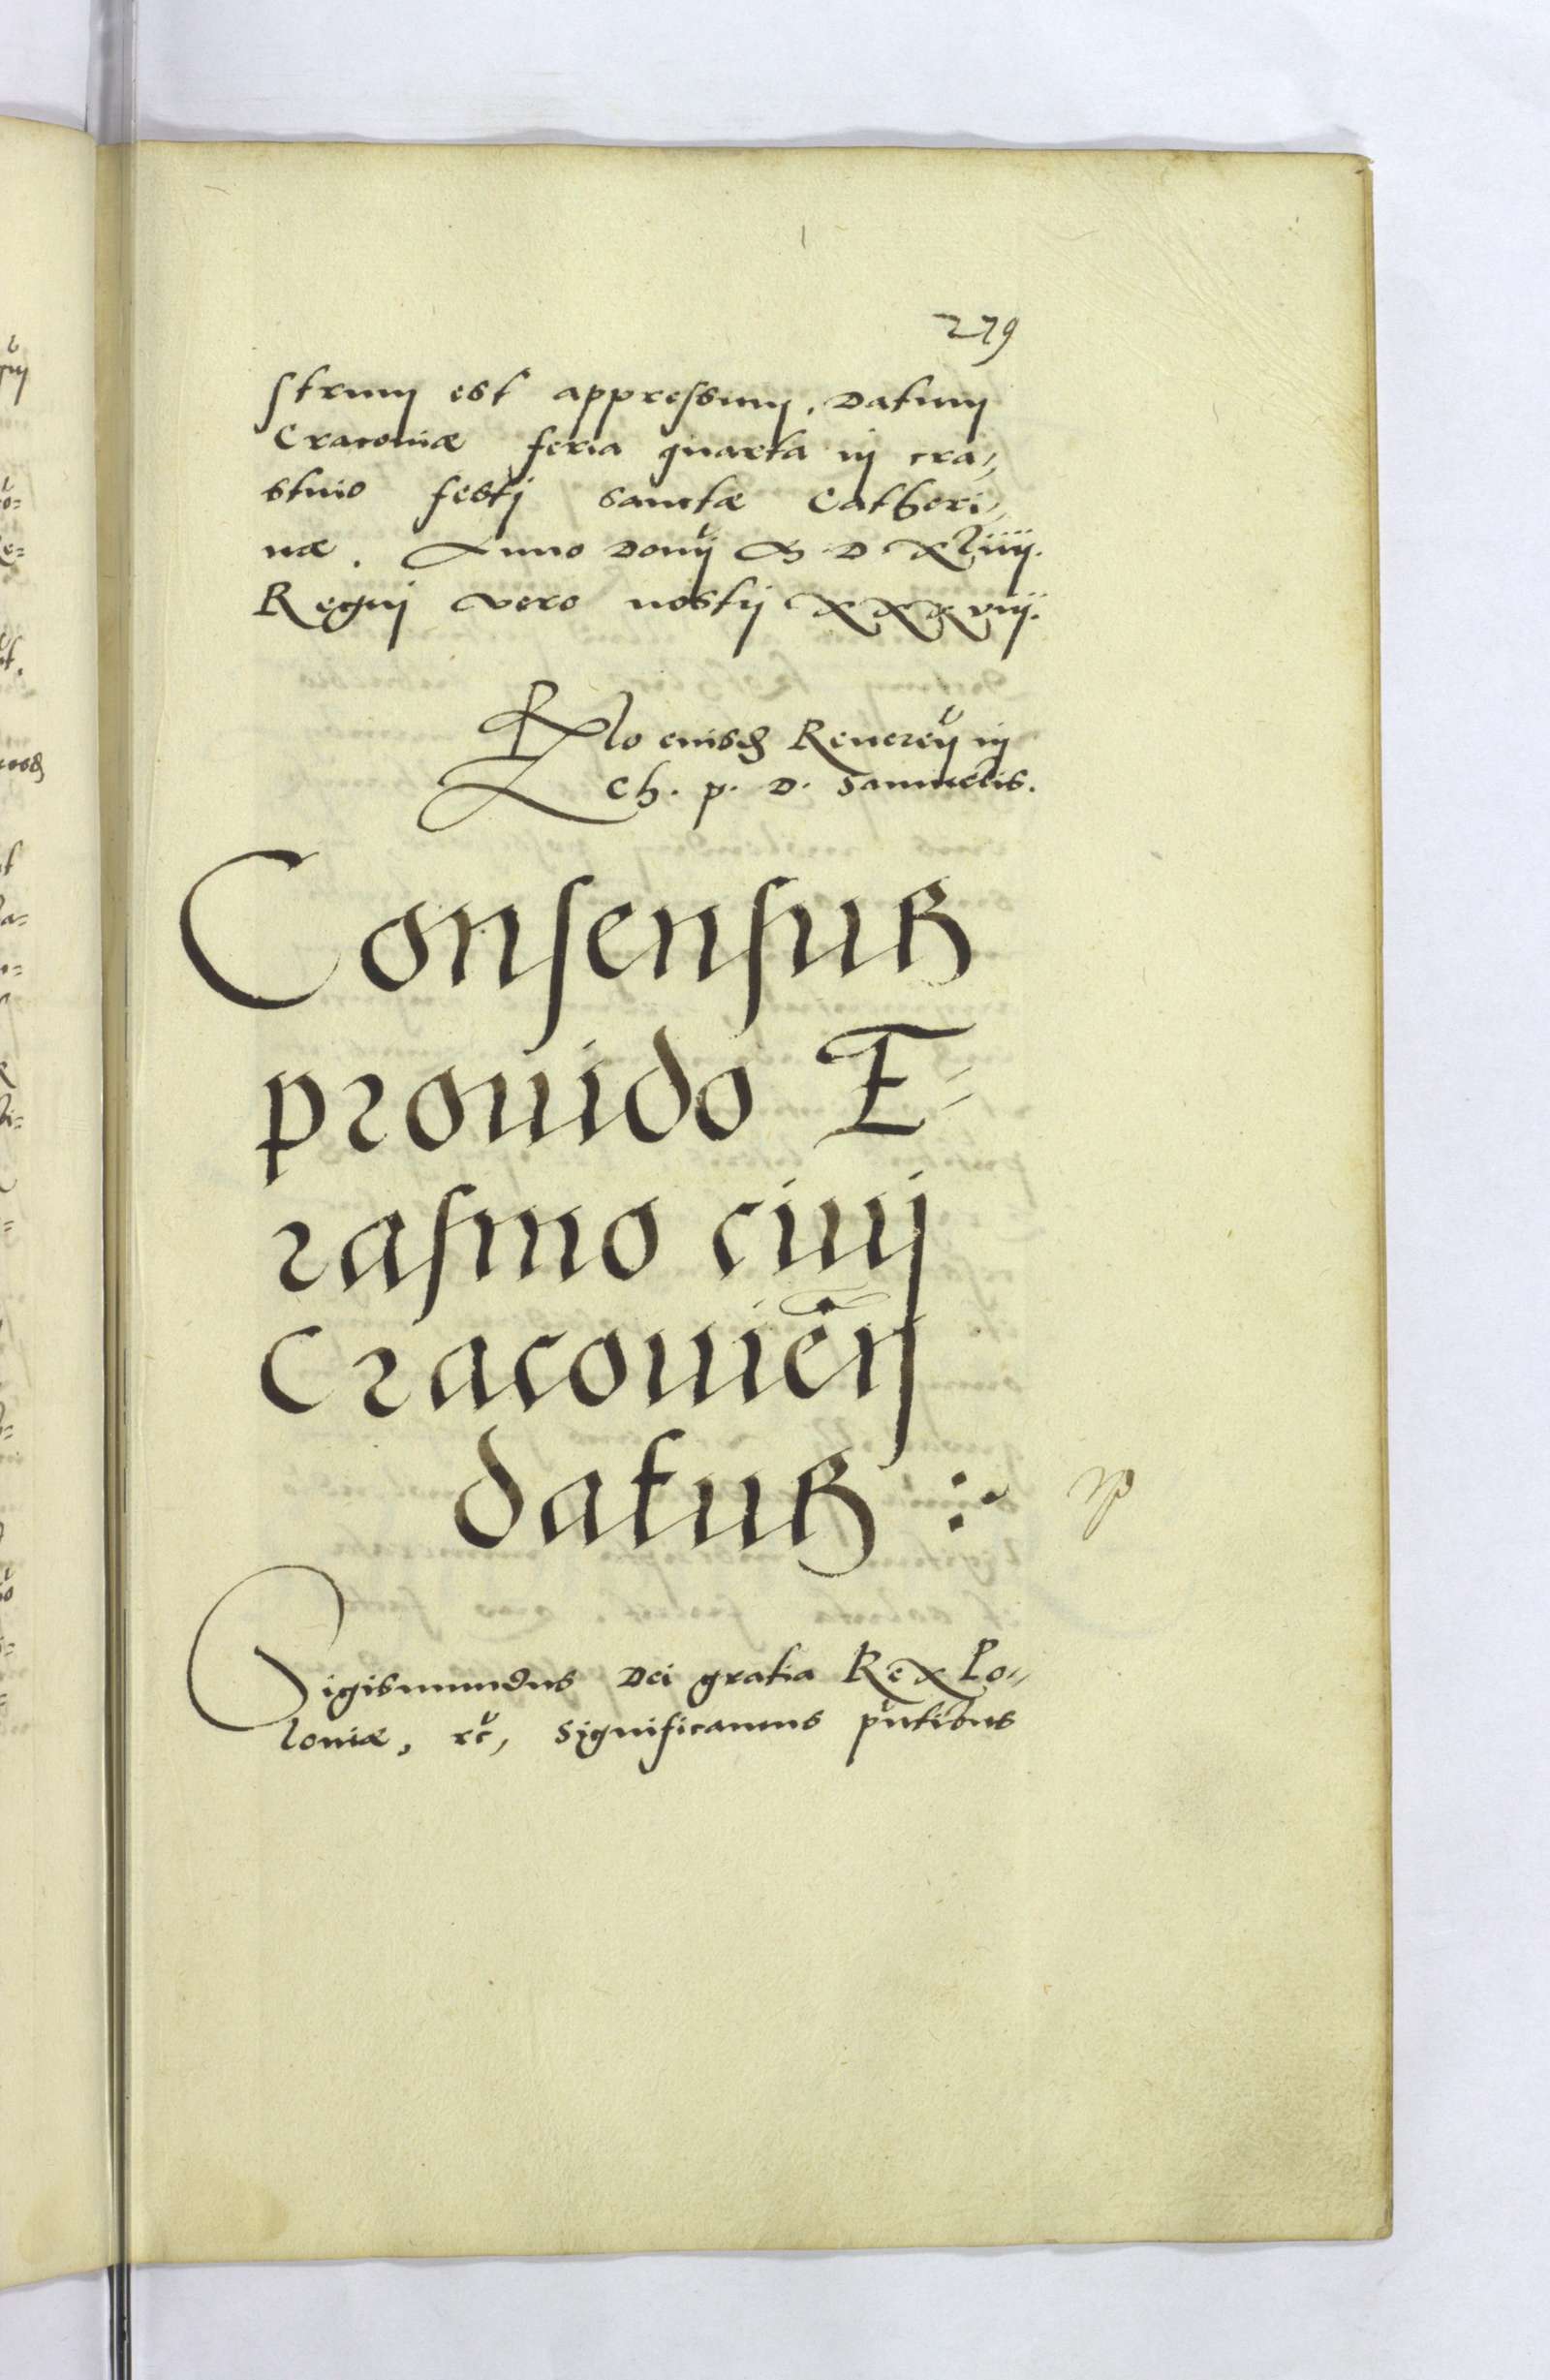 279
strum est appressum. Datum
Cracoviæ feria quarta in cra-
stino festi sanctæ Catheri-
næ. Anno Domi M D xliiii.
Regni vero nostri xxxviii.
Rlo eiusdem Reveren in
Ch. p. D. Samuelis.
Consensus
provido E-
rasmo civi
Cracovien
datus
Sigismundus Dei gratia Rex Po-
loniæ, etc, Significamus pntibus